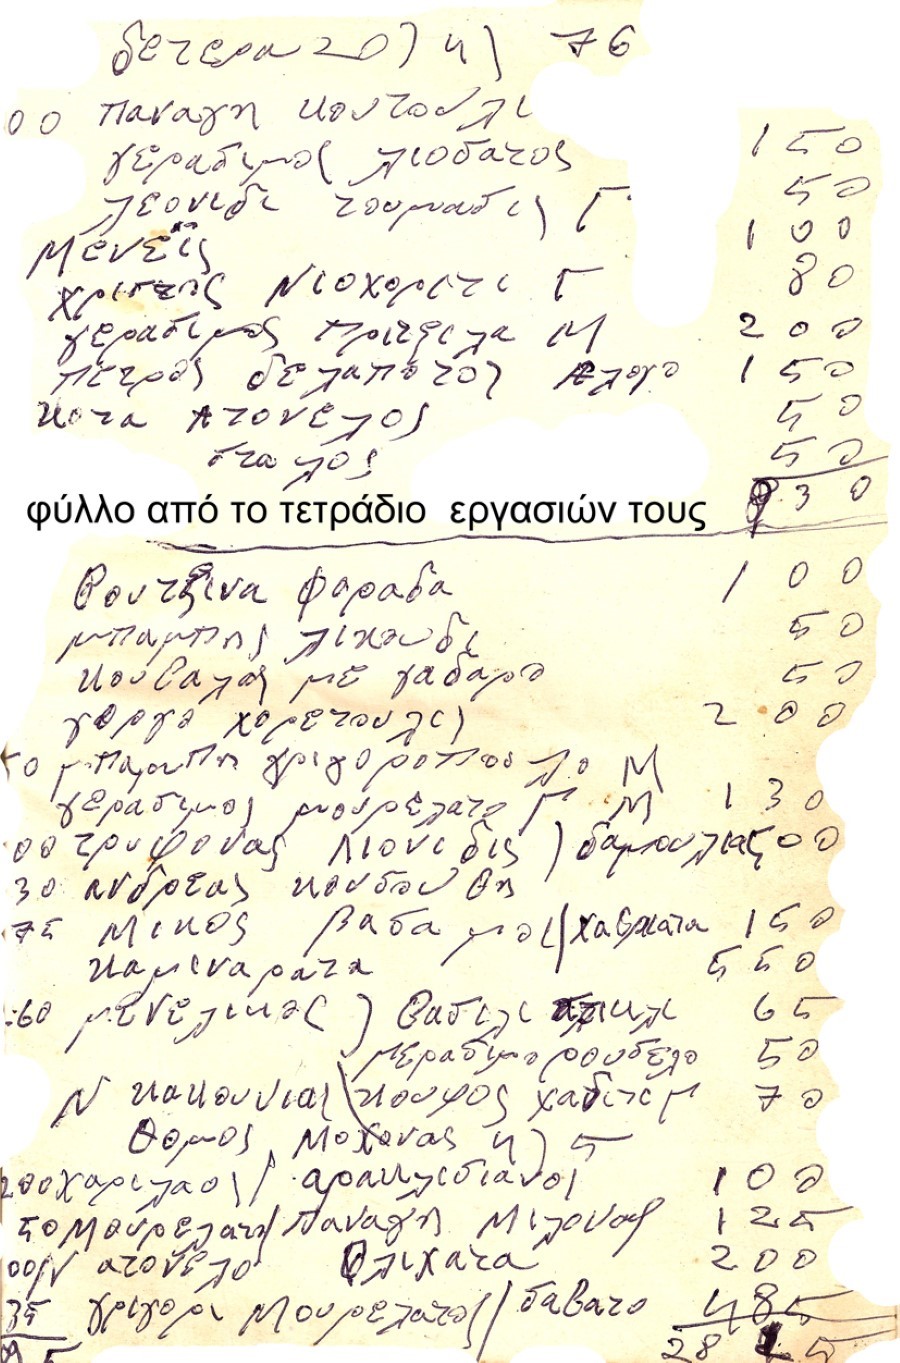 δετερα 20) 4) 76
00 παναγη κουτουλι
γεραδιμος λιοδατος 150
λεονιδι τουμαδις) Γ 50
Μενεϊς 100
χριστος Νιοχοριτι Γ 80
γεραδιμος πριτζιλα Μ 200
πετρος δελαπότος Αλογο 150
κοτα ατονελος 50
σταλος 50
930
φύλλο από το τετράδιο εργασιών τους
βουτζινα φαραδα 100
μπαμπης λικουδι 50
κουβαλας με γαδαρο 50
γοργο χορετουλις) 200
50 μπαμπη γριγοροπουλο Μ
γερασιμος μουρελατο Γ Μ 130
00 τρυφονας Λιονιδις) δαμουλιας 500
30 ανδρεας κουδουθη
75 Μικος βαδα μος/ χαβριατα 150
καμιναρατα 550
60 μενελικος) βασιλι 65
μεραδιμο ρουδελο 50
Ν κακουνιας κουφος χαδιτε Γ 70
θομος Μοχονας 4) 5
200 χαριλαος/ αρακλιδιανος 100
50 Μουρελατη/ παναγη Μιλονας 125
00/Ν ατονελο θλιχατα 200
35 γριγορι Μουρελατος/ δαβατο 485
5 2815